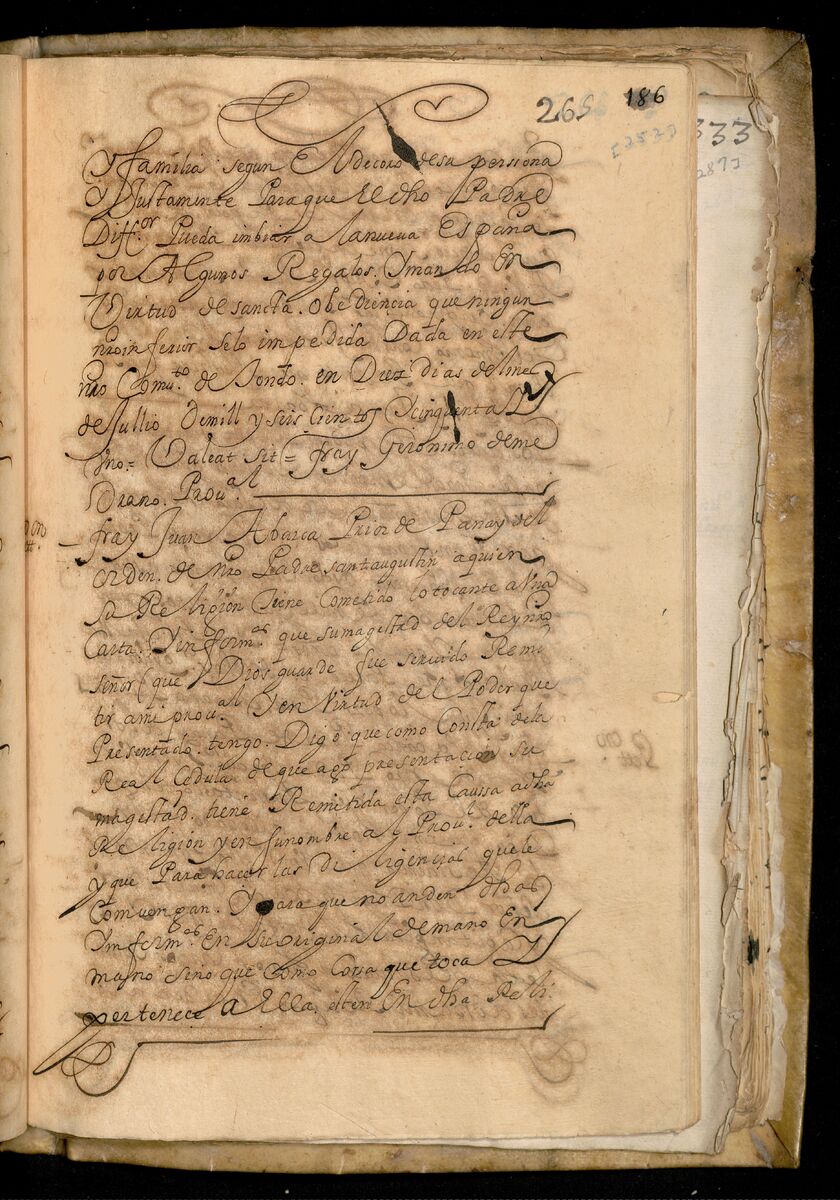 265 186
[253]
333
287]
y familia segun El decoro desu perssona
Y Justamente Paraque El dho Padre
Diffor Pueda imbiar a lanueva España
por Algunos Regalos. Ymando En
Virtud de sancta. obediencia que ningun
nro inferior selo impedida Dada en este
nro Comuto de Tondo. en Diez dias delmes
de Jullio Demill y seis cientos Ycinquenta Y
Uno = Valeat sit = fray Geronimo deme
Drano. Proual
fray Juan Abarca Prior de Panay del
orden. de nro Padre santaugustin aquien
su Religion tiene Cometido lo tocante a Una
Carta. Yinformes que sumagestad del Rey nro
señor (que Dios guarde fue seruido Remi
tir ami proual Y en Virtud del Poder que
Presentado. tengo. Digo que como Consta dela
Real Cedula de que ago presentacion su
magestad. tiene Remitida esta Caussa adha
Religion y en sunombre al Proul della
y que Para hacer las Diligencias quele
Comvengan. Y para que no anden dhos
Ynformes En su original demano En
mano sino que Como Cossa que toca Y
pertenece a Ella. esten En dha Reli